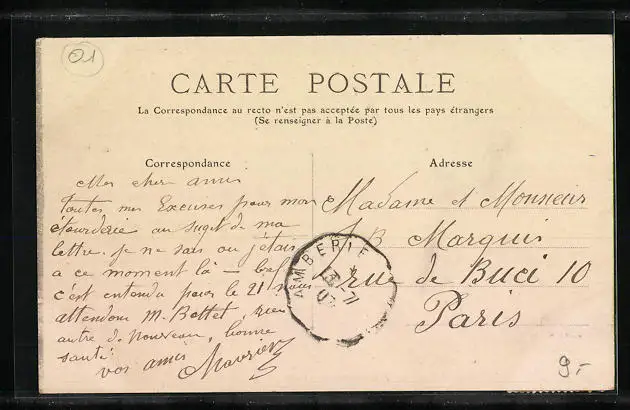 01
CARTE POSTALE
La Correspondance au recto n'est pas acceptée par tous les pays étrangers
(Se renseigner à la Poste)
Correspondance
Mes chers amis
Toutes mes Excuses pour mon
étourderie au sujet de ma
lettre. je ne sais ou j'étais
a ce moment là — bref
c'est entendu pour le 21 nous
attendons M. Bottet, rien
autre de nouveau, bonne
santé
vos amis
Adresse
Madame et Monsieur
J B Marquis
rue de Buci 10
Paris
AMBERIE
9.-